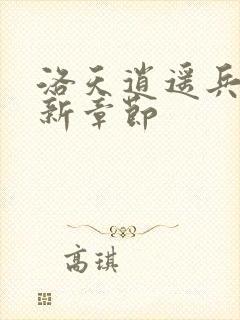 洛天逍遥兵
新章节
高琪